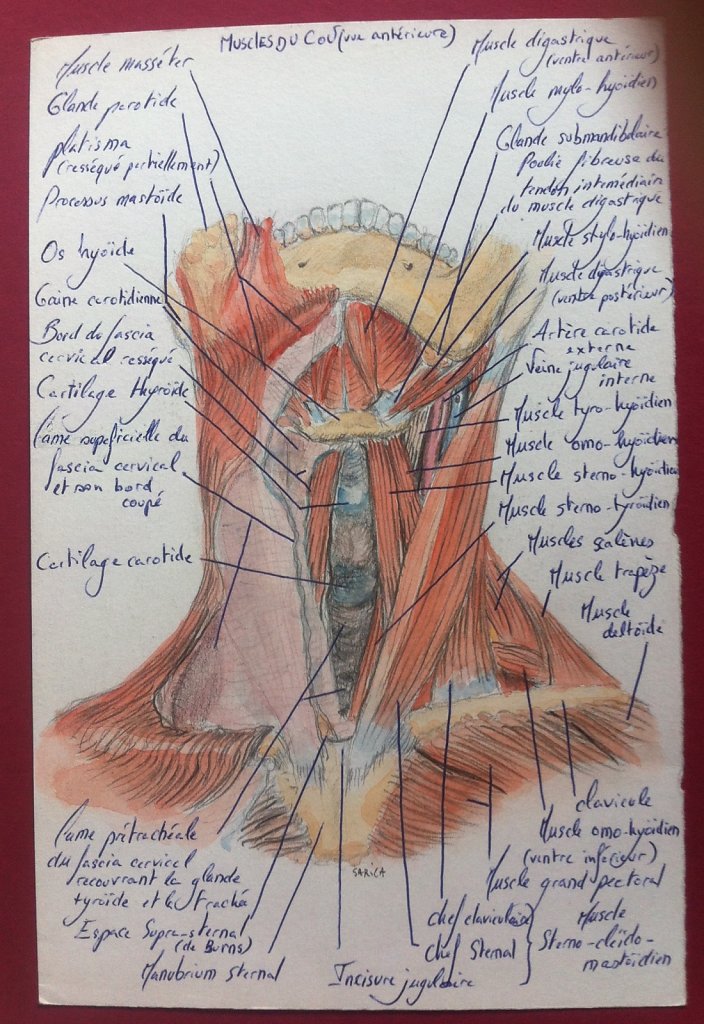 MUSCLES DU COU (vue antérieure)
Muscle masséter
Glande parotide
platisma
(reséqué partiellement)
Processus mastoïde
Os hyoïde
Gaine carotidienne
Bord du fascia
cervical reséqué
Cartilage thyroïde
lame superficielle du
fascia cervical
et son bord
coupé
Cartilage carotide
lame prétrachéale
du fascia cervical
recouvrant la glande
tyroïde et la trachée
Espace Supra-sternal
(de Burns)
Manubrium sternal
Muscle digastrique
(ventre antérieur)
Muscle mylo-hyoïdien
Glande submandibulaire
Poulie fibreuse du
tendon intermédiaire
du muscle digastrique
Muscle stylo-hyoïdien
Muscle digastrique
(ventre postérieur)
Artère carotide
externe
Veine jugulaire
interne
Muscle tyro-hyoïdien
Muscle omo-hyoïdien
Muscle sterno-hyoïdien
Muscle sterno-tyroïdien
Muscles scalènes
Muscle trapèze
Muscle
deltoïde
clavicule
Muscle omo-hyoïdien
(ventre inférieur)
Muscle grand pectoral
chef claviculaire
chef sternal
Muscle
Sterno-cléïdo-
mastoïdien
Incisure jugulaire
SARICA